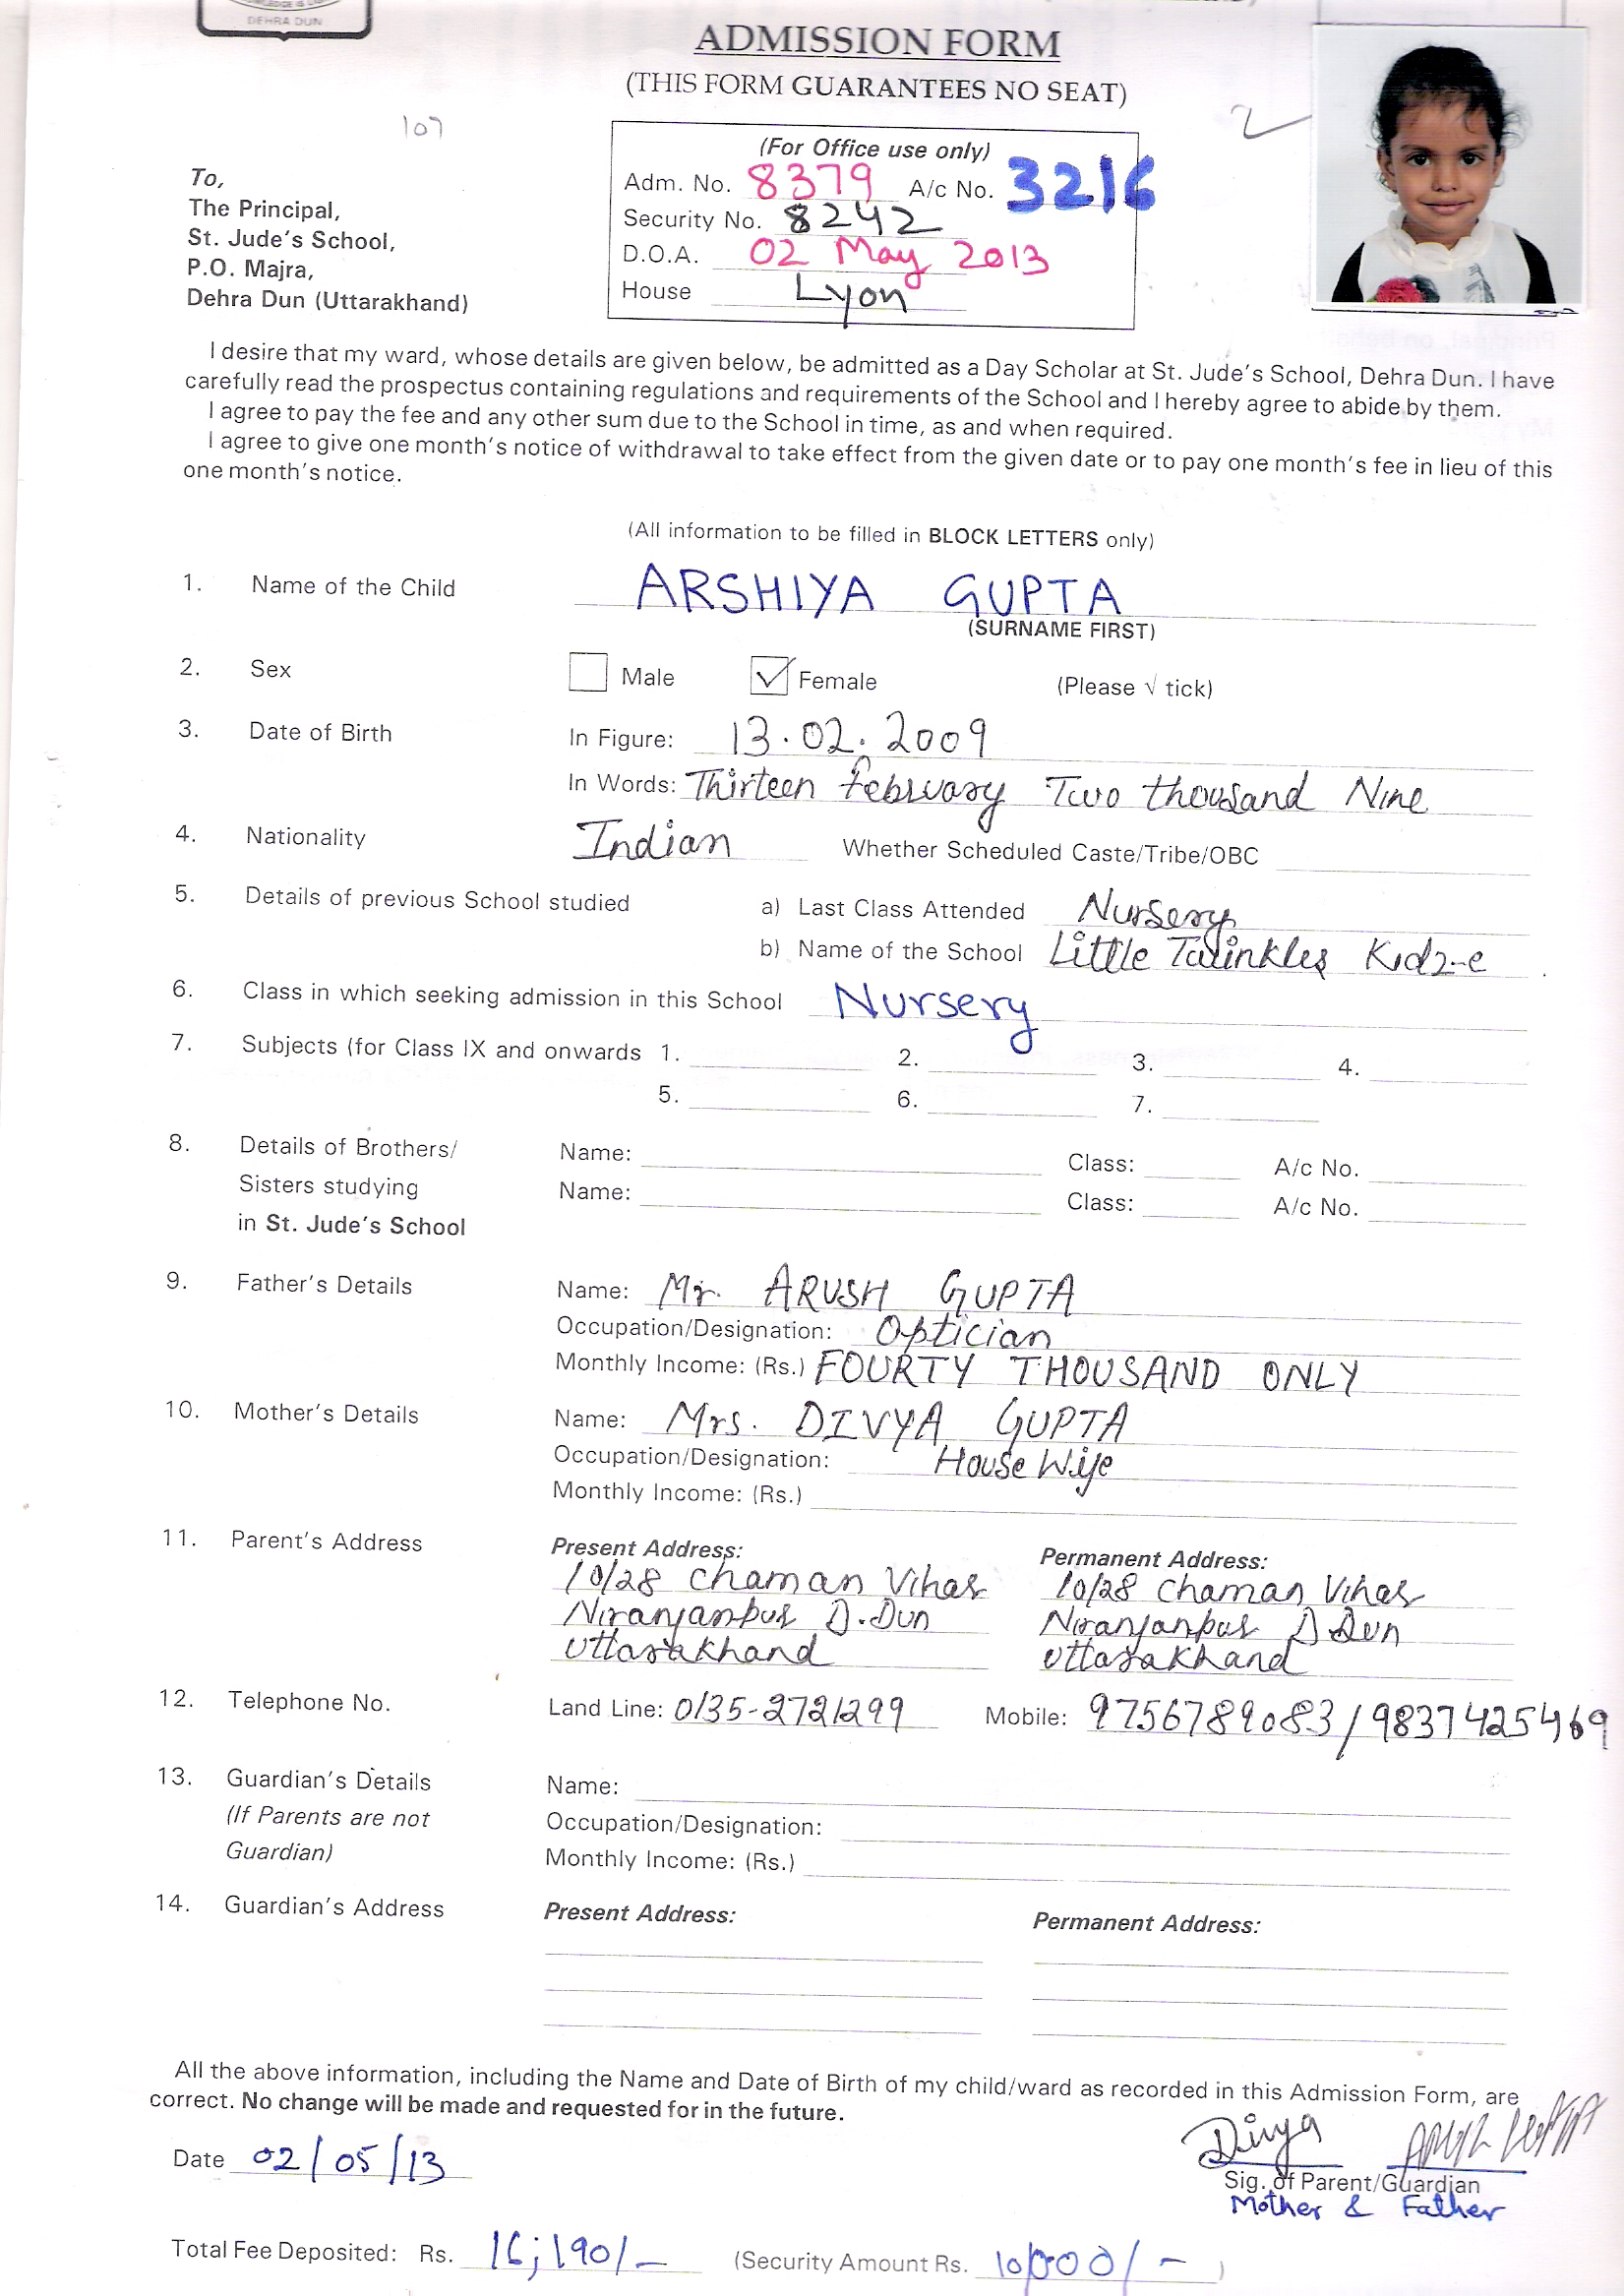 DEHRA DUN
ADMISSION FORM
(THIS FORM GUARANTEES NO SEAT)
107
2
To,
The Principal,
St. Jude's School,
P.O. Majra,
Dehra Dun (Uttarakhand)
(For Office use only)
Adm. No. 8379 A/c No. 3216
Security No. 8242
D.O.A. 02 May 2013
House Lyon
I desire that my ward, whose details are given below, be admitted as a Day Scholar at St. Jude's School, Dehra Dun. I have
carefully read the prospectus containing regulations and requirements of the School and I hereby agree to abide by them.
I agree to pay the fee and any other sum due to the School in time, as and when required.
I agree to give one month's notice of withdrawal to take effect from the given date or to pay one month's fee in lieu of this
one month's notice.
(All information to be filled in BLOCK LETTERS only)
1. Name of the Child ARSHIYA GUPTA
(SURNAME FIRST)
2. Sex Male Female (Please √ tick)
3. Date of Birth In Figure: 13.02.2009
In Words: Thirteen February Two thousand Nine
4. Nationality Indian Whether Scheduled Caste/Tribe/OBC
5. Details of previous School studied a) Last Class Attended Nursery
b) Name of the School Little Twinkles Kidz-e
6. Class in which seeking admission in this School Nursery
7. Subjects (for Class IX and onwards 1. 2. 3. 4.
5. 6. 7.
8. Details of Brothers/ Name: Class: A/c No.
Sisters studying Name: Class: A/c No.
in St. Jude's School
9. Father's Details Name: Mr. ARUSH GUPTA
Occupation/Designation: Optician
Monthly Income: (Rs.) FOURTY THOUSAND ONLY
10. Mother's Details Name: Mrs. DIVYA GUPTA
Occupation/Designation: House Wife
Monthly Income: (Rs.)
11. Parent's Address Present Address: Permanent Address:
10/28 Chaman Vihar 10/28 Chaman Vihar
Niranjanpur D.Dun Niranjanpur D Dun
Uttarakhand Uttarakhand
12. Telephone No. Land Line: 0135-2721299 Mobile: 9756789083/9837425469
13. Guardian's Details Name:
(If Parents are not Occupation/Designation:
Guardian) Monthly Income: (Rs.)
14. Guardian's Address Present Address: Permanent Address:
All the above information, including the Name and Date of Birth of my child/ward as recorded in this Admission Form, are
correct. No change will be made and requested for in the future.
Divya
Date 02/05/13
Sig. of Parent/Guardian
Mother & Father
Total Fee Deposited: Rs. 16,190/- (Security Amount Rs. 10,000/-)